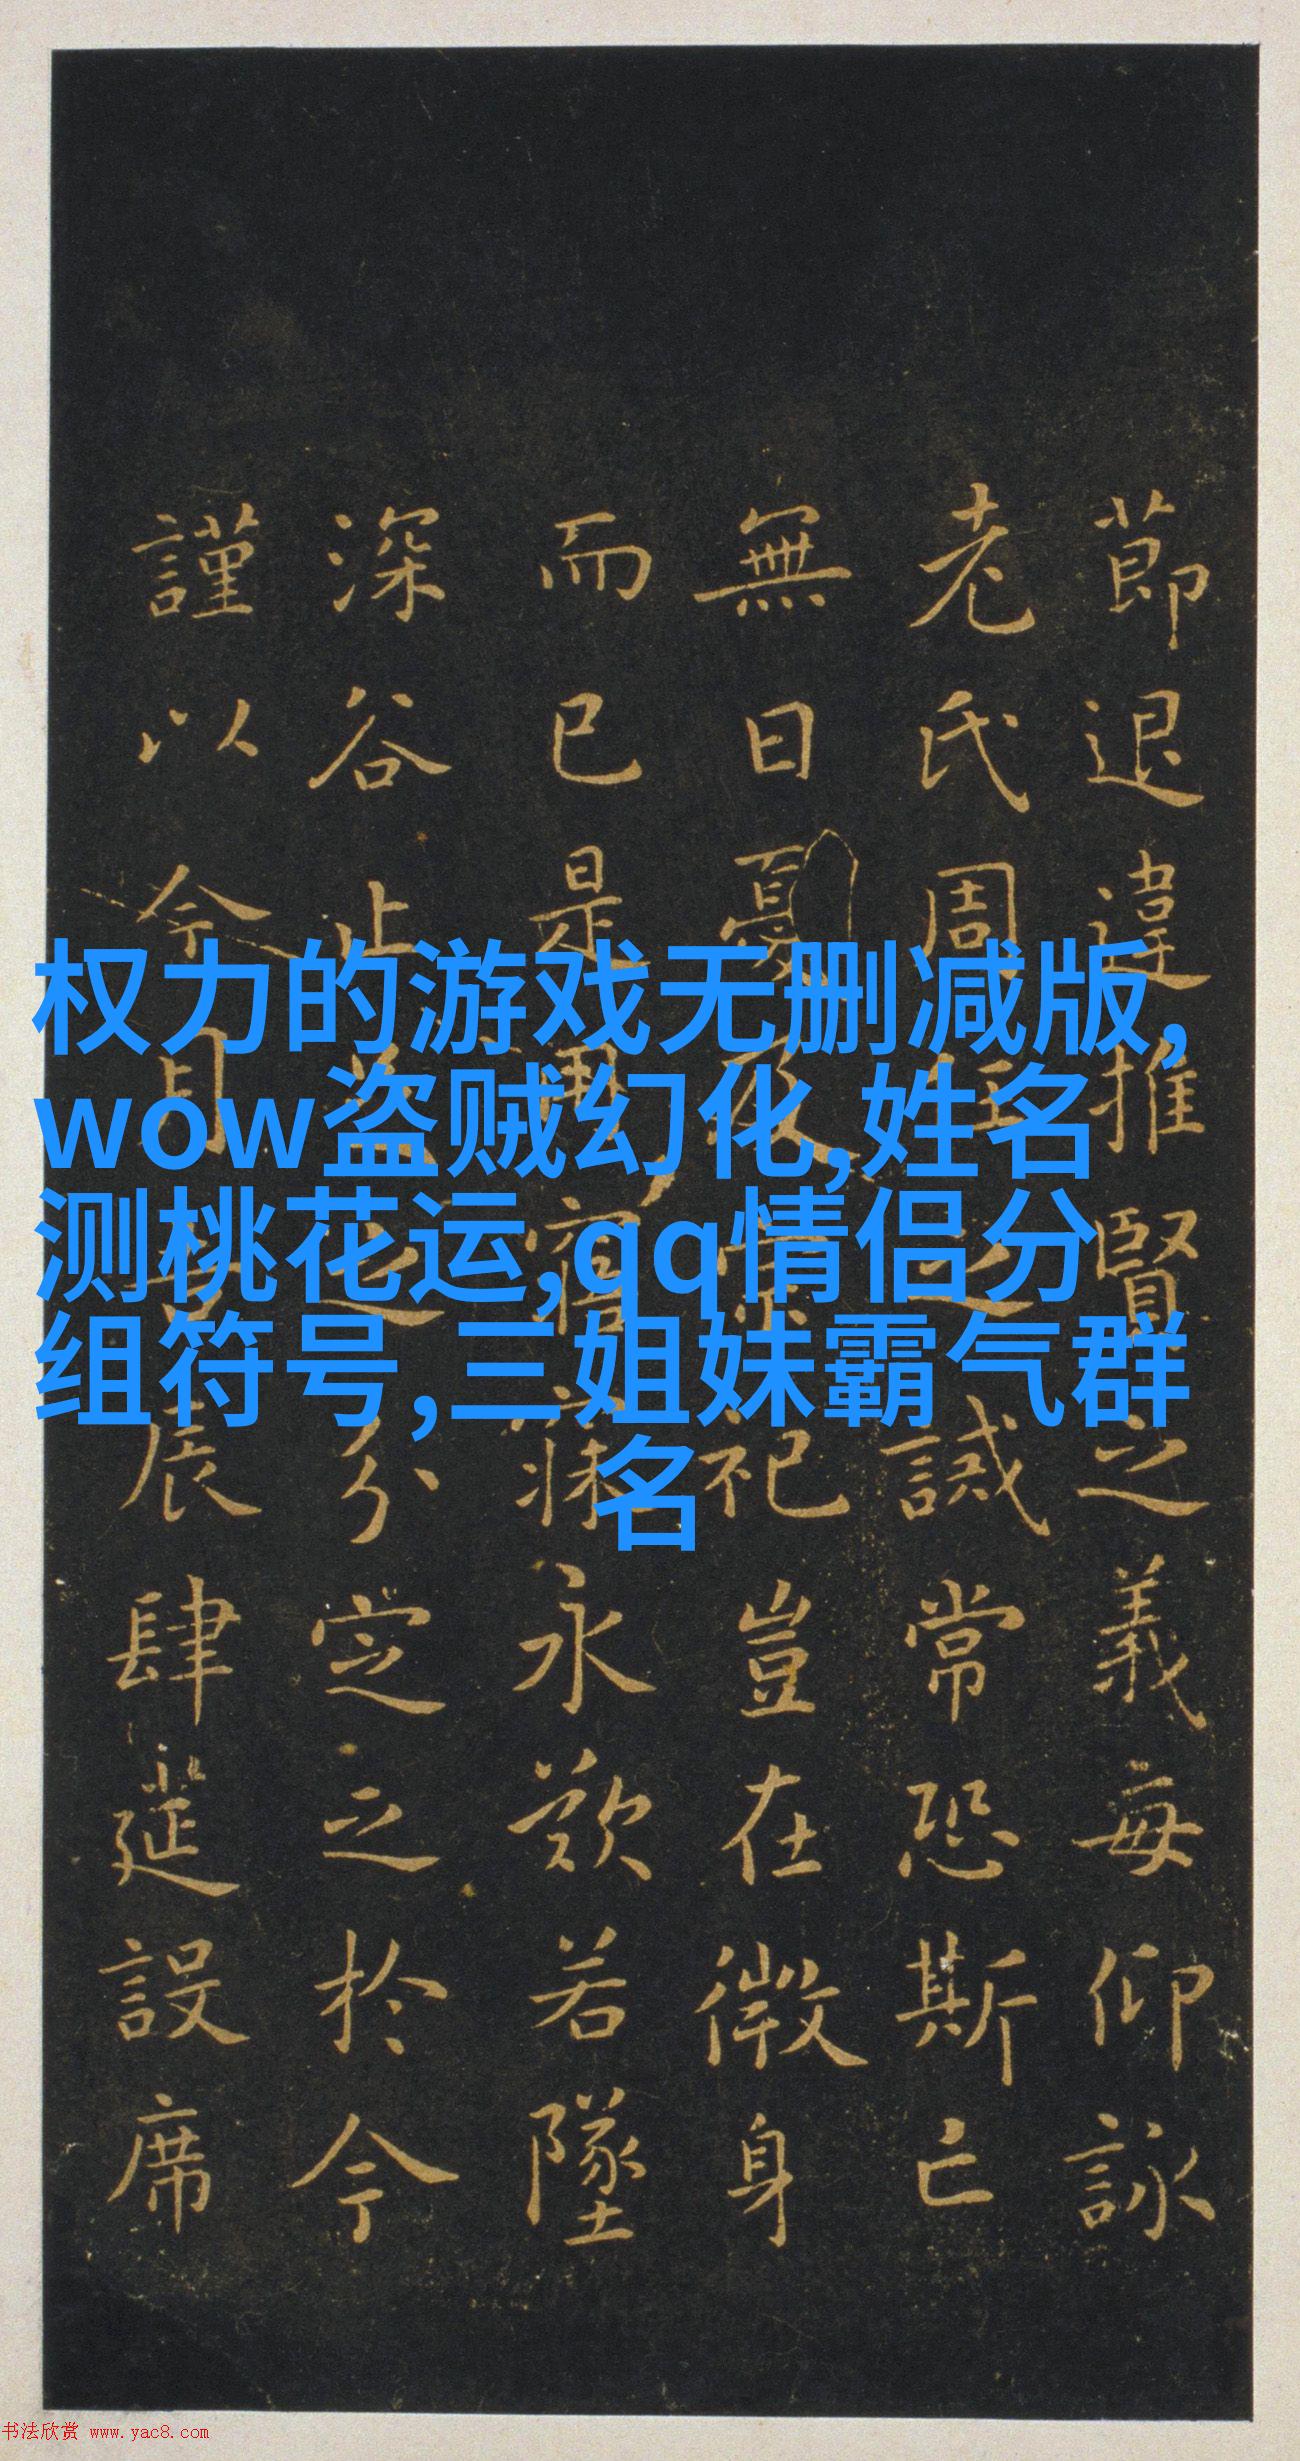 權力的游戏无删减版,
wow盗贼幻化,姓名
测桃花运,qq情侣分
组符号,三姐妹霸气群
名
莭退違推賢之義每仰詠
老氏周任之誡常恐斯亡
無日憂及宗祀豈在微身
而已是用寤寐永歎若墜
深谷止足之分定之於今
謹以今月吉辰肆筵設席
书法欣赏 www.yac8.com